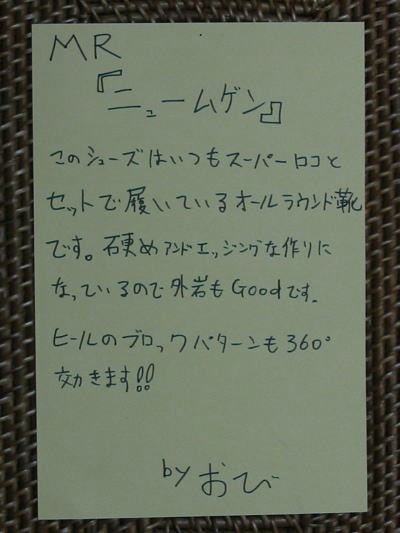 MR
『ニュームゲン』
このシューズはいつもスーパーロコと
セットで履いているオールラウンド靴
です。硬めアンドエッジングな作りに
なっているので外岩もGoodです.
ヒールのブロックパターンも360°
効きます!!
by おび